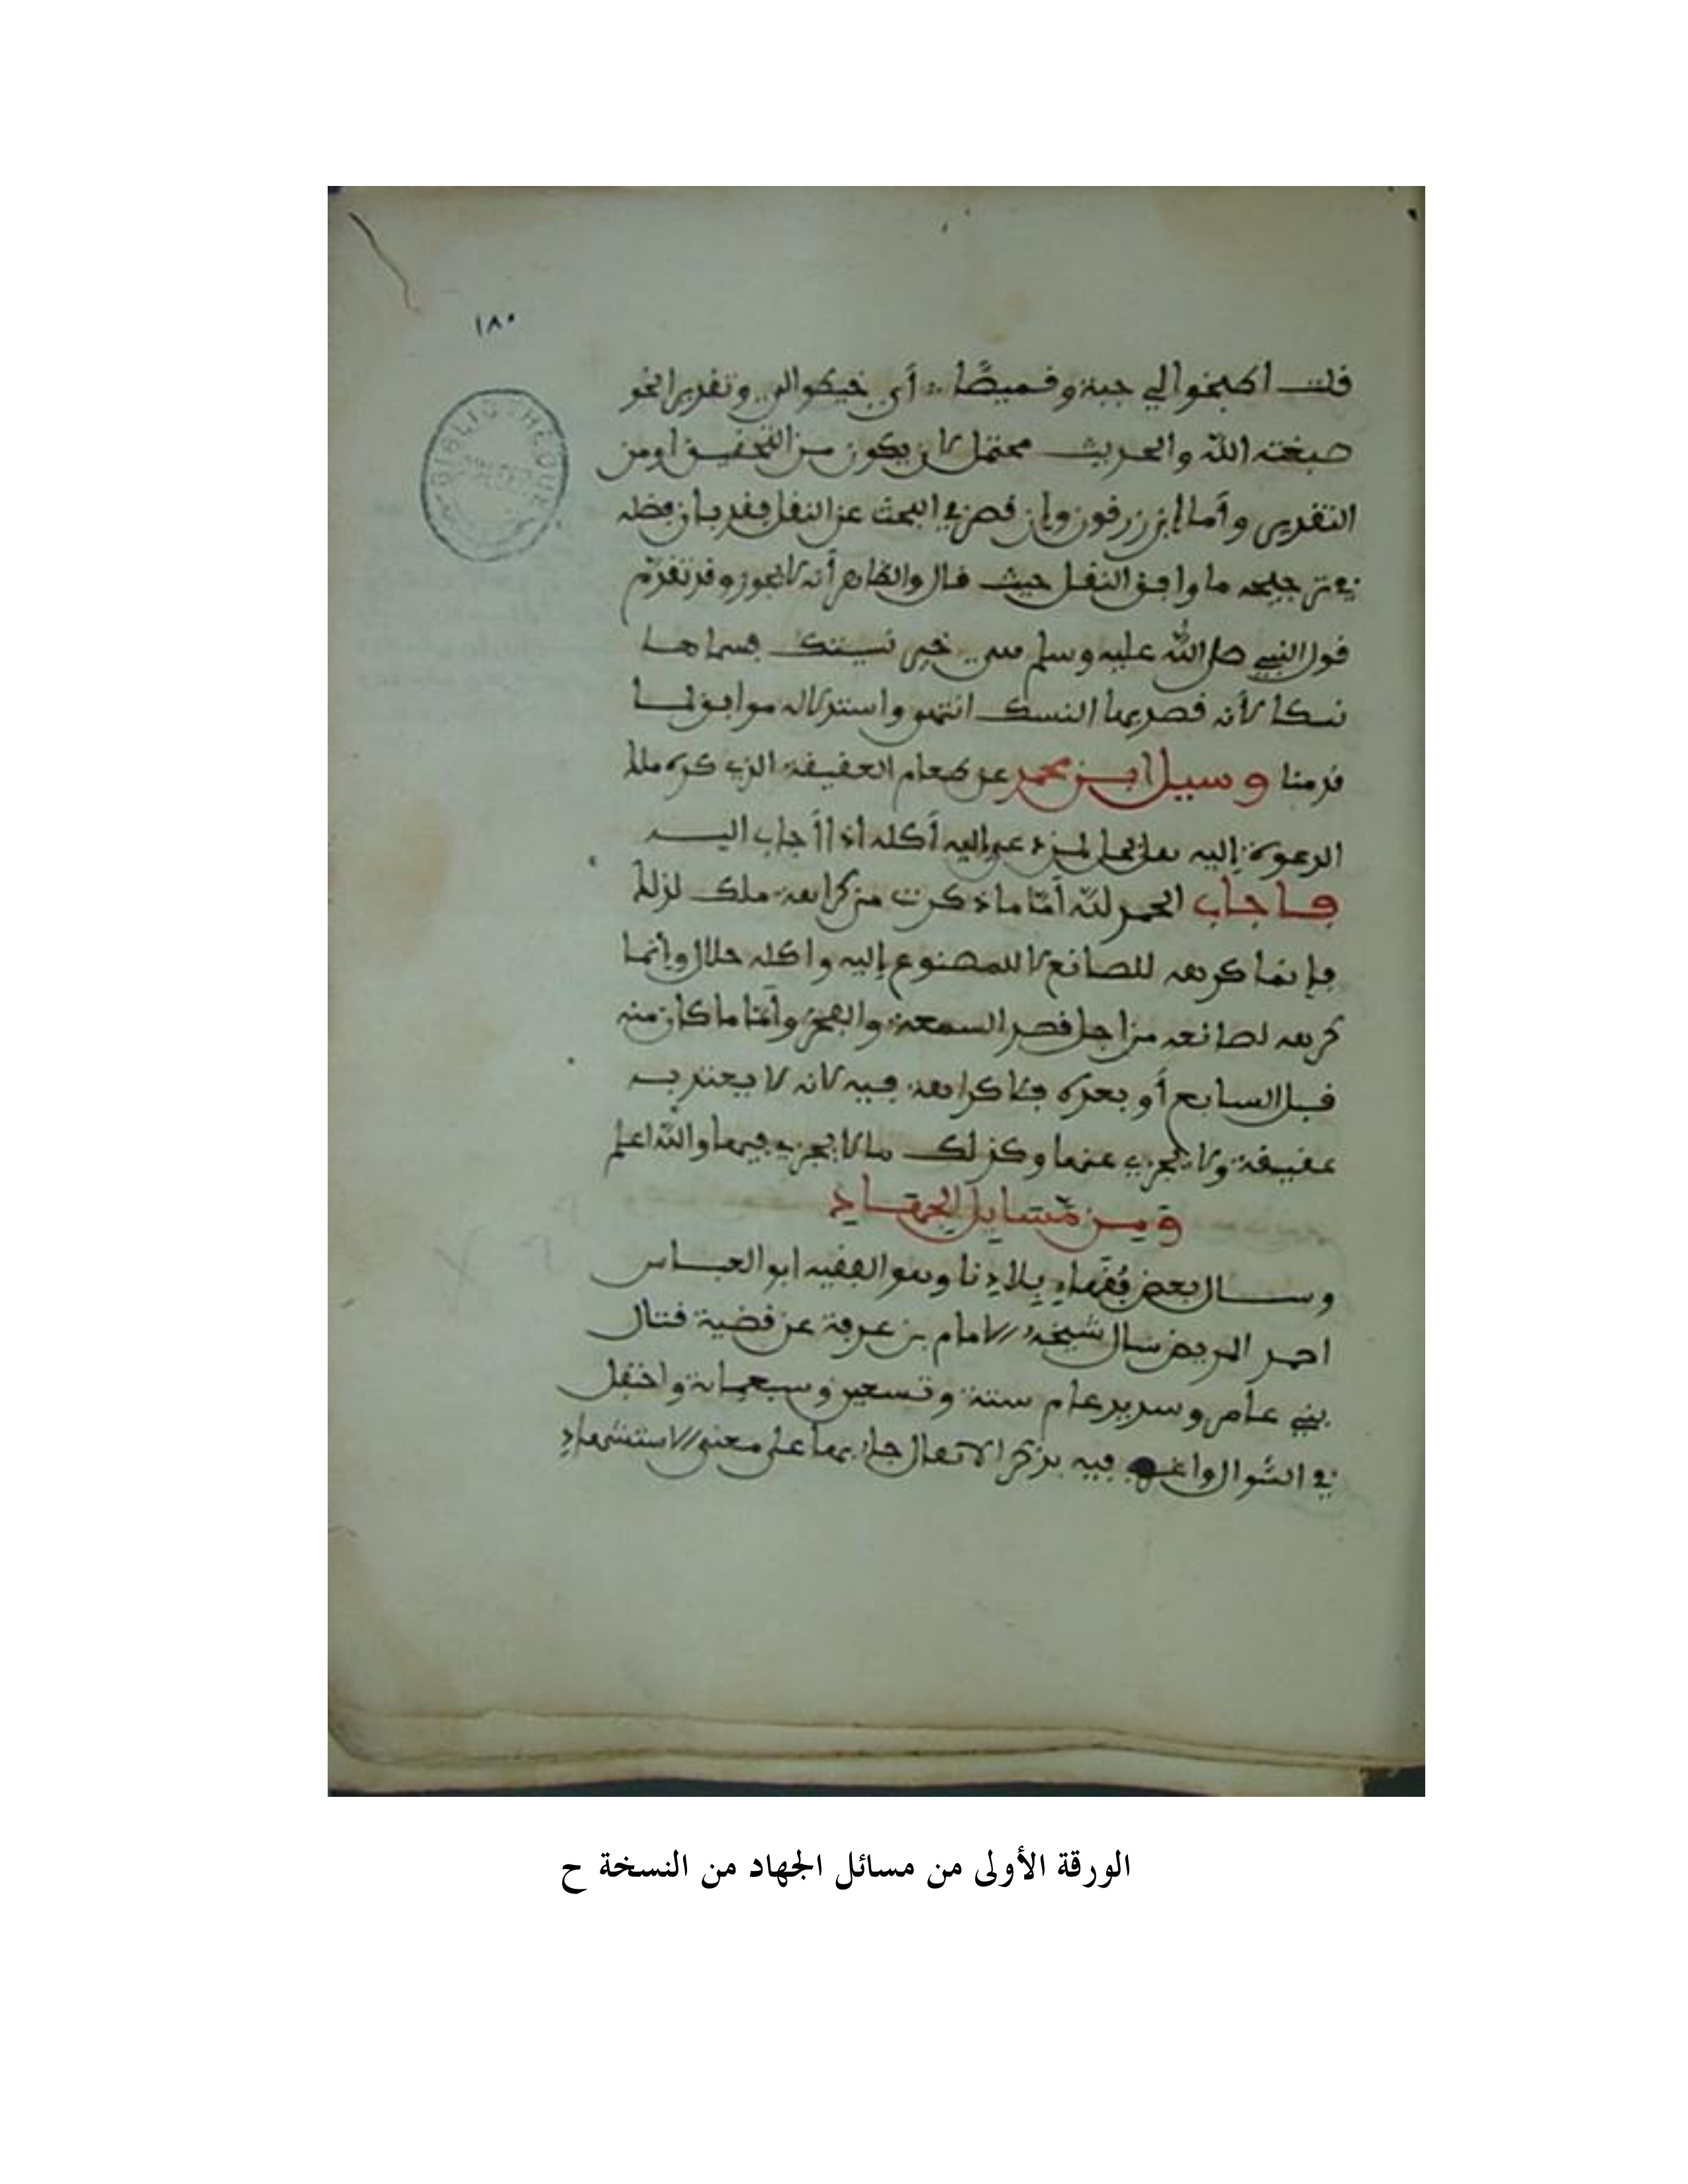 ١٨٠
BIBLIOTHEQUE
قلت اطبخوا لي جبة وقميصًا أي خيطوا لي وتقديرا نحو
صبغة الله والحديث محتمل لان يكون من التحقيق اومن
التقدير وأما ابن زرقون وإن قصر في البحث عن النقل فقد بان فضله
في ترجيحه ما وافق النقل حيث قال والظاهر أنه لا يجوز وقد تقدم
قول النبي صلى الله عليه وسلم هي خير نسيكتك فسماها
نسكا لأنه قصد بها النسك انتهى واستدلاله موافق لما
قدمنا وسيل ابن محمد عن طعام العقيقة الذي كره ملك
الدعوة إليه هل يحل لمن دعي إليه أكله اذا أجاب اليه
فاجاب الحمد لله أمّا ما ذكرت من كراهة ملك لذلك
فإنما كرهه للصانع لا للمصنوع إليه واكله حلال وإنما
كرهه لصانعه من اجل قصد السمعة والفخر وأمّا ما كان منه
قبل السابع أو بعده فلا كراهة فيه لانه لا يعتد به
عقيقة ولا يجزي عنها وكذلك ما لا يجزي فيها والله اعلم
ومن مسايل الجهاد
وسال بعض فقهاء بلادنا وهو الفقيه ابو العباس
احمد المريض سال شيخه الامام بن عرفة عن قضية قتال
بني عامر وسديد عام ستة وتسعين وسبعماىة واحتفل
في السّوال فيه بذكر جاء بها على معنى الاستشهاد
الورقة الأولى من مسائل الجهاد من النسخة ح